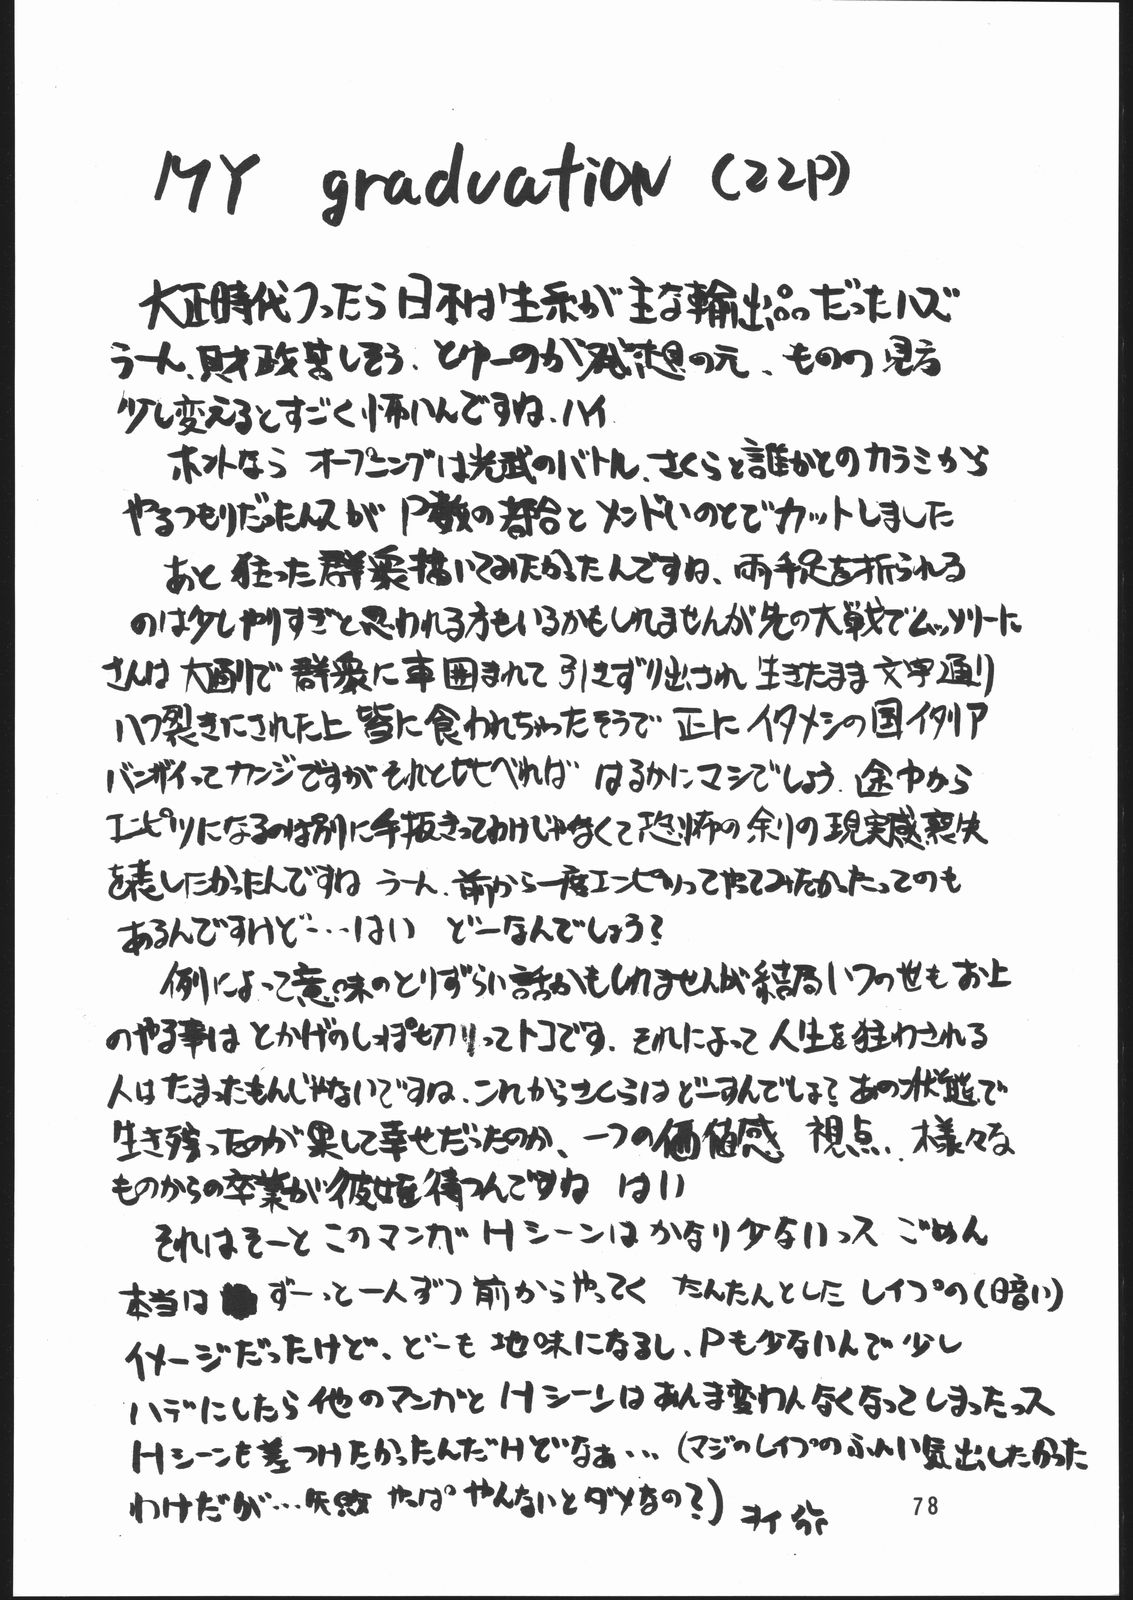 MY graduation (22P)
大正時代つったら日本は生糸が主な輸出品だったハズ
うーん、財政苦しそう、とゆーのが発想の元、ものの見方
少し変えるとすごく怖いんですね、ハイ
ホントなら オープニングは光武のバトル、さくらと誰かとのカラミから
やるつもりだったんスが P数の都合とメンドいのとでカットしました
あと狂った群衆描いてみたかったんですね、両手足を折られる
のは少しやりすぎと思われる方もいるかもしれませんが先の大戦でムッソリーニ
さんは大通りで群衆に車囲まれて引きずり出され生きたまま文字通り
八つ裂きにされた上皆に食われちゃったそうで正にイタメシの国イタリア
バンザイってカンジですがそれと比べればはるかにマシでしょう、途中から
エンピツになるのは別に手抜きってわけじゃなくて恐怖の余りの現実感喪失
を表したかったんですね うーん、前から一度エンピツってやってみたかったってのも
あるんですけど……はい どーなんでしょう?
例によって意味のとりずらい話かもしれませんが結局いつの世もお上
のやる事はとかげのしっぽ切りってトコです、それによって人生を狂わされる
人はたまったもんじゃないですね、これからさくらはどーすんでしょ?あの状態で
生き残ったのが果して幸せだったのか、一つの価値感 視点、様々な
ものからの卒業が彼女を待つんですね はい
それはそーとこのマンガHシーンはかなり少ないっス ごめん
本当は ずーっと一人ずつ前からやってく たんたんとした レイプの(暗い)
イメージだったけど、どーも地味になるし、Pも少ないんで少し
ハデにしたら他のマンガとHシーンはあんま変わんなくなってしまったっス
Hシーンも差つけたかったんだけどなぁ…(マジのレイプのふんい気出したかった
わけだが…失敗 やっぱ やんないとダメなの?)
78